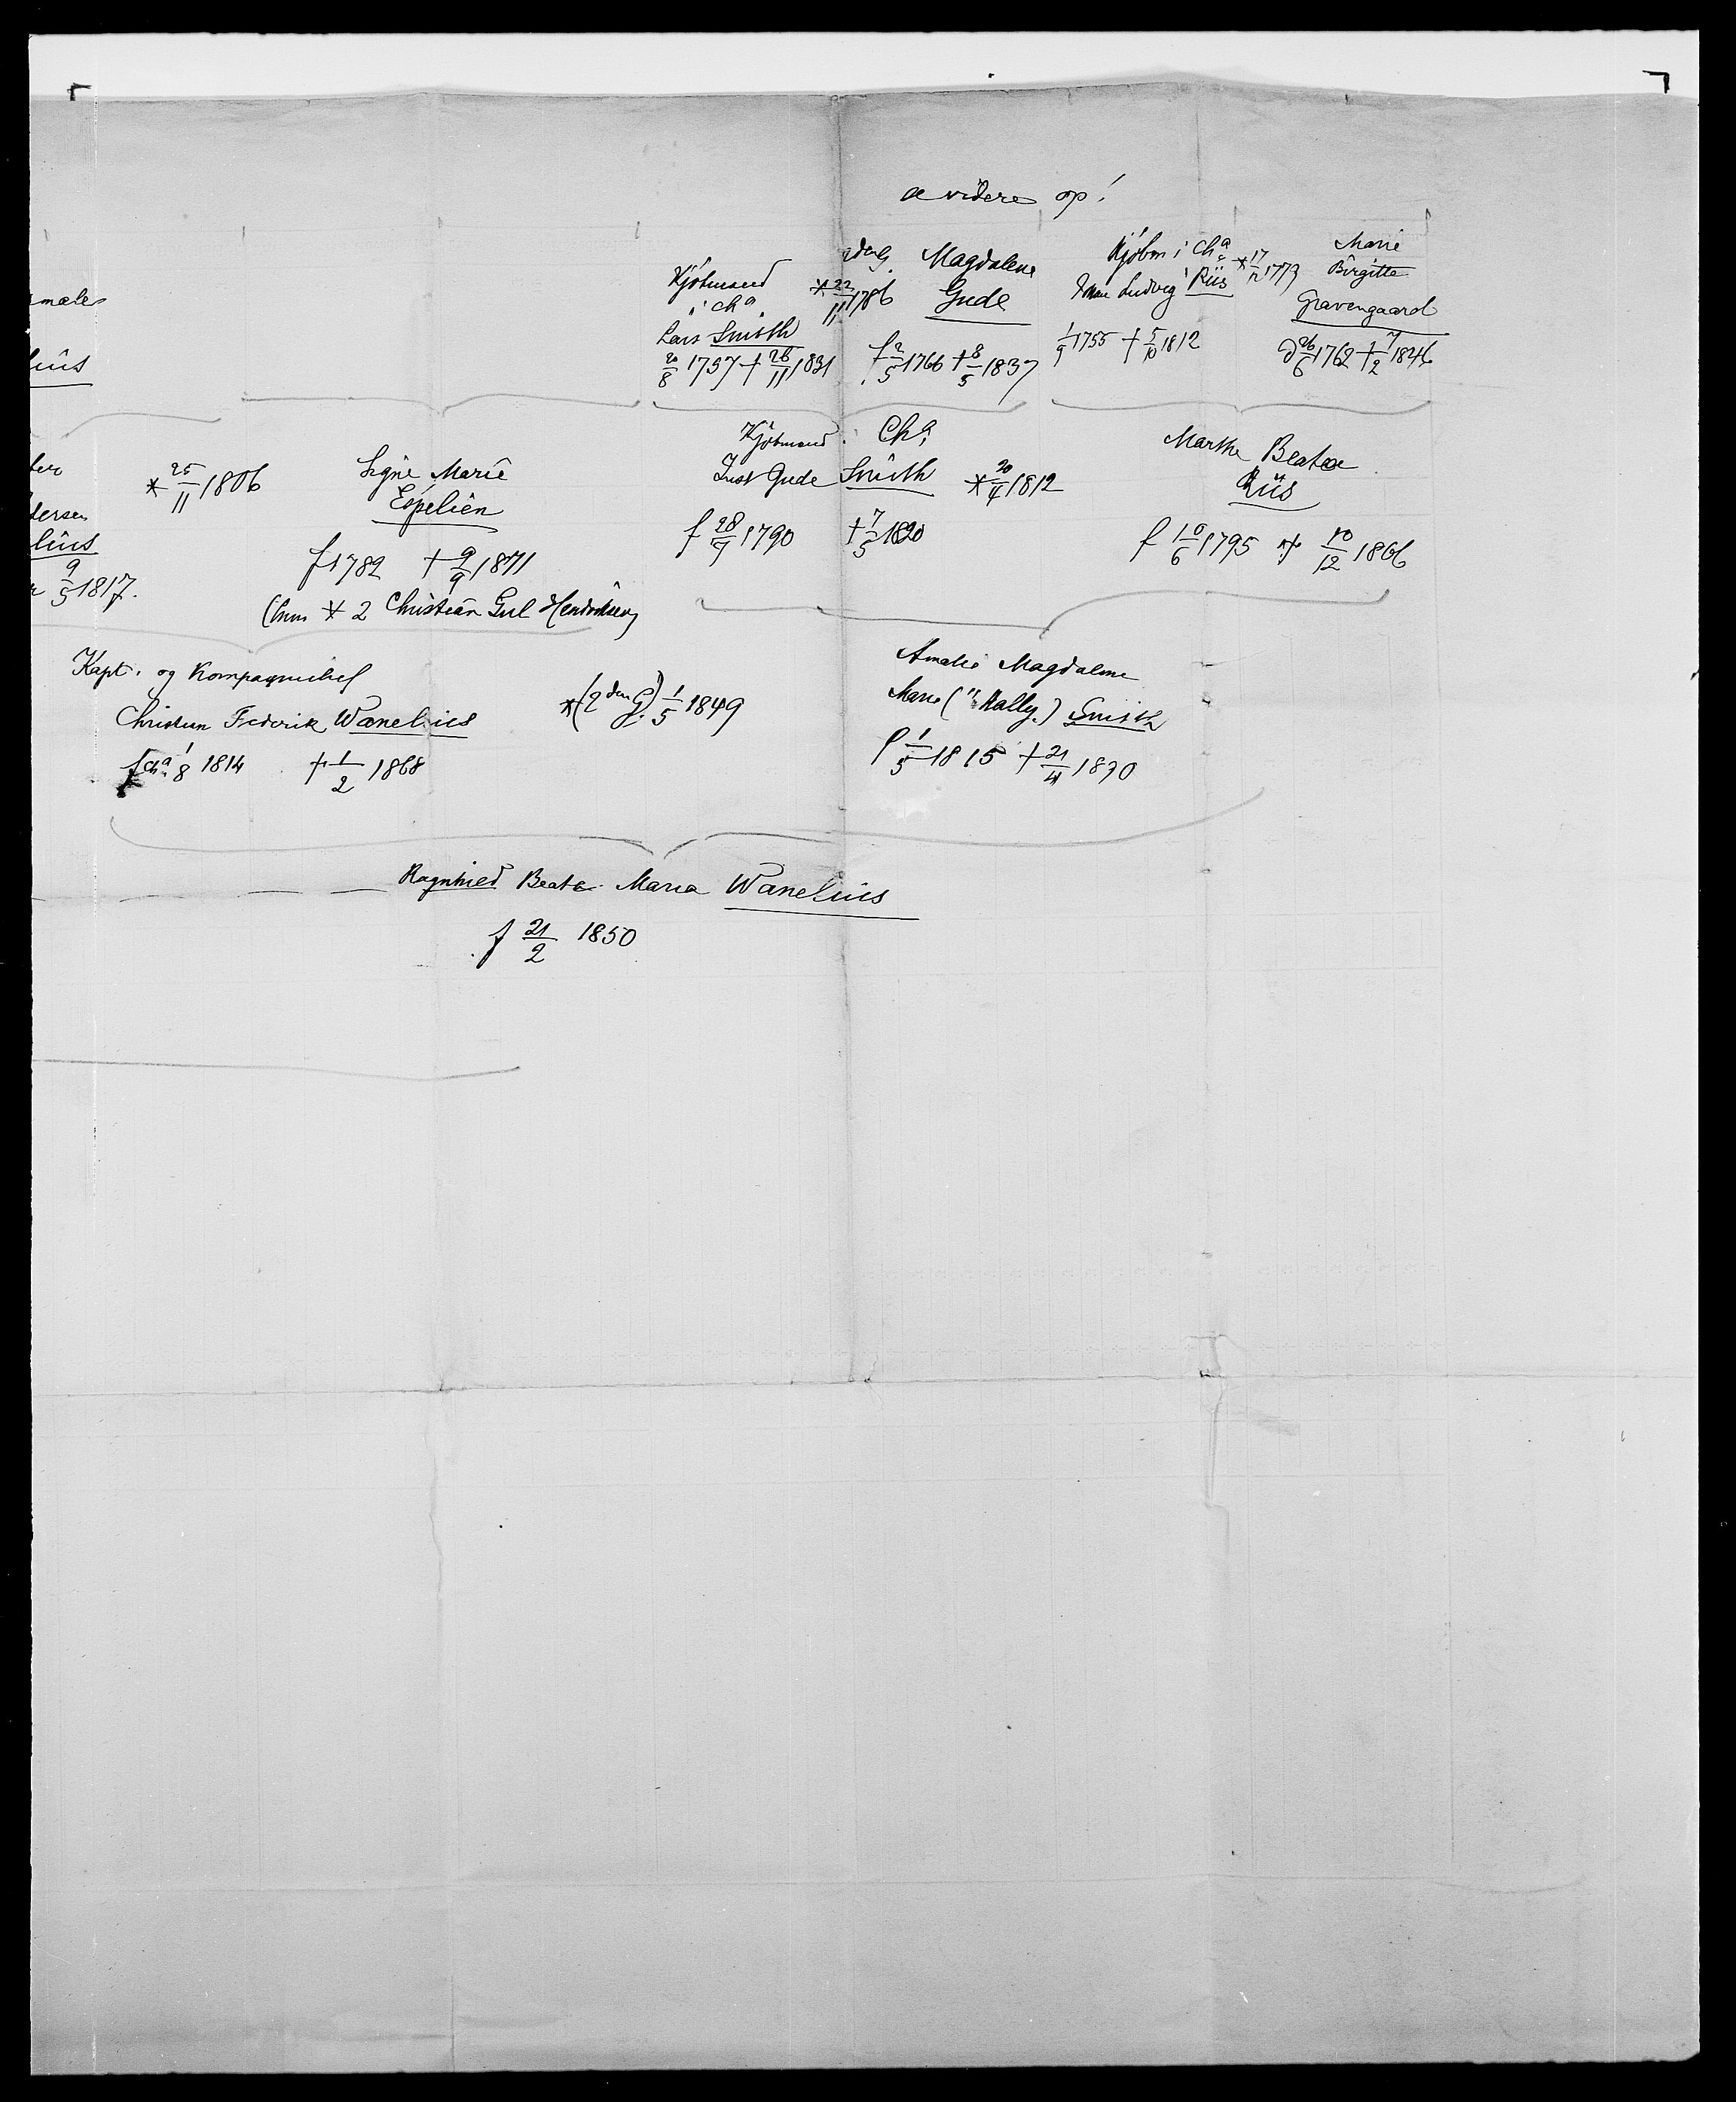 & videre op!
Kjøbmand
i Cha
Lars Smith
20/8 1757 † 26/11 1831
* 22/11 1786
Magdalene
Gude
f 2/5 1766 † 8/5 1837
Kjøbm i Cha
Ludvig Riis
1/9 1755 † 5/10 1812
Marie
Birgitte
Gravengaard
26/6 1762 † 7/2 1846
* 25/11 1806
Signe Marie
Espelien
f 1782 † 9/9 1871
* 2 Christian Gul Hendriksen)
9/5 1817.
Kjøbmand Cha
Just Gude Smith
f 28/7 1790 † 7/5 1820
* 20/4 1812
Marthe Beate
Riis
f 10/6 1795 † 10/12 1866
Kapt. og Kompagnichef
Christian Frederik Wanelius
f Cha 1/8 1814 † 1/2 1868
* (2den G.) 1/5 1849
Amalie Magdalene
Marie ("Mally.) Smith
f 1/5 1815 † 21/4 1890
Ragnhild Beate Maria Wanelius
f 21/2 1850